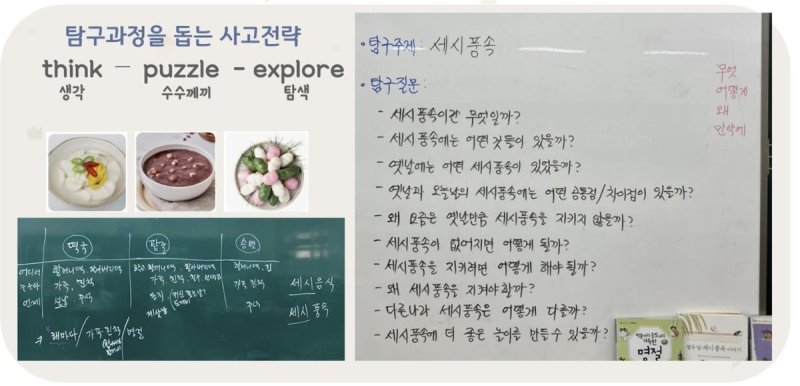 탐구과정을 돕는 사고전략
think – puzzle - explore
생각 수수께끼 탐색
떡국 팥죽 송편
어디서 할머니댁,
누구랑 가족, 친척 가족, 친척, 가족 친척
언제 설날, 추석 동지 추석
해마다 / 가족 친척 / 명절
세시음식
세시 풍속
·탐구주제: 세시풍속
·탐구질문:
- 세시풍속이란 무엇일까?
- 세시풍속에는 어떤 것들이 있을까?
- 옛날에는 어떤 세시풍속이 있었을까?
- 옛날과 오늘날의 세시풍속에는 어떤 공통점/차이점이 있을까?
- 왜 요즘은 옛날만큼 세시풍속을 지키지 않을까?
- 세시풍속이 없어지면 어떻게 될까?
- 세시풍속을 지키려면 어떻게 해야 될까?
- 왜 세시풍속을 지켜야할까?
- 다른나라 세시풍속은 어떻게 다를까?
- 세시풍속에 더 좋은 놀이를 만들수 있을까?
무엇
어떻게
왜
만약에
명절
세시풍속 이야기